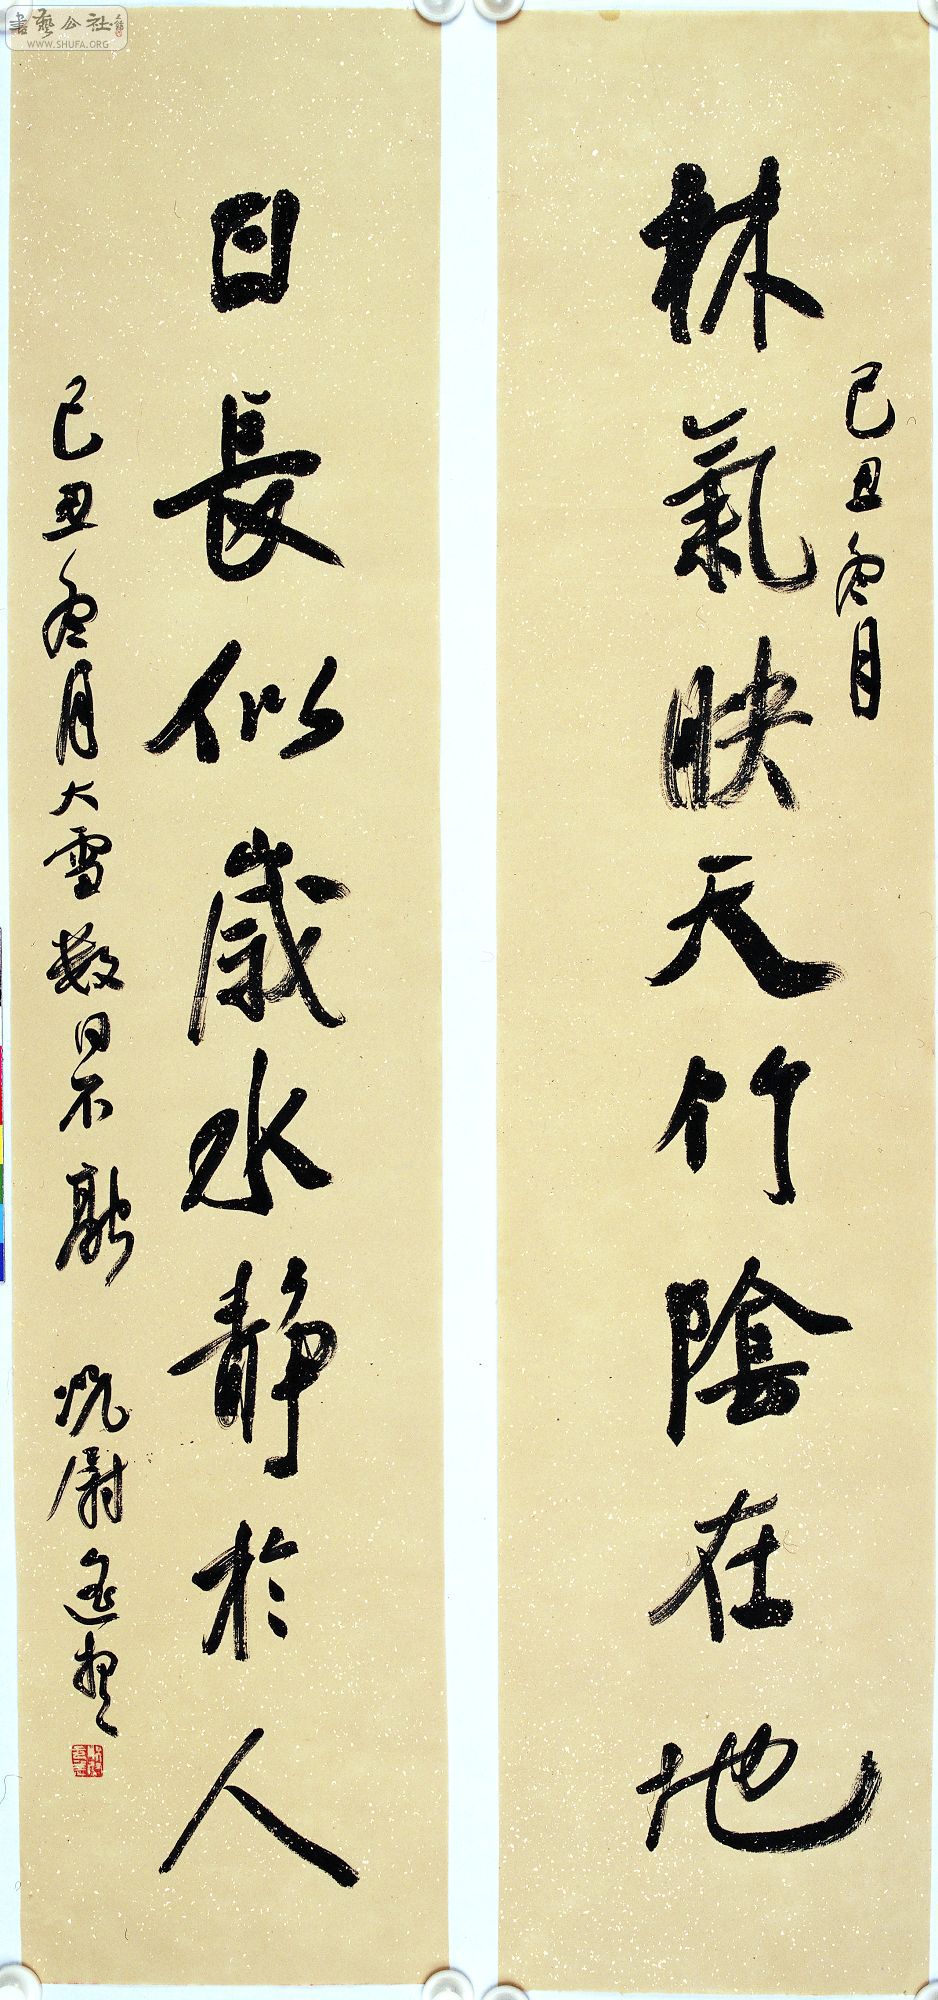 林氣映天竹陰在地
己丑冬月
日長似歲水靜於人
己丑冬月大雪数日不融
書藝公社
WWW.SHUFA.ORG